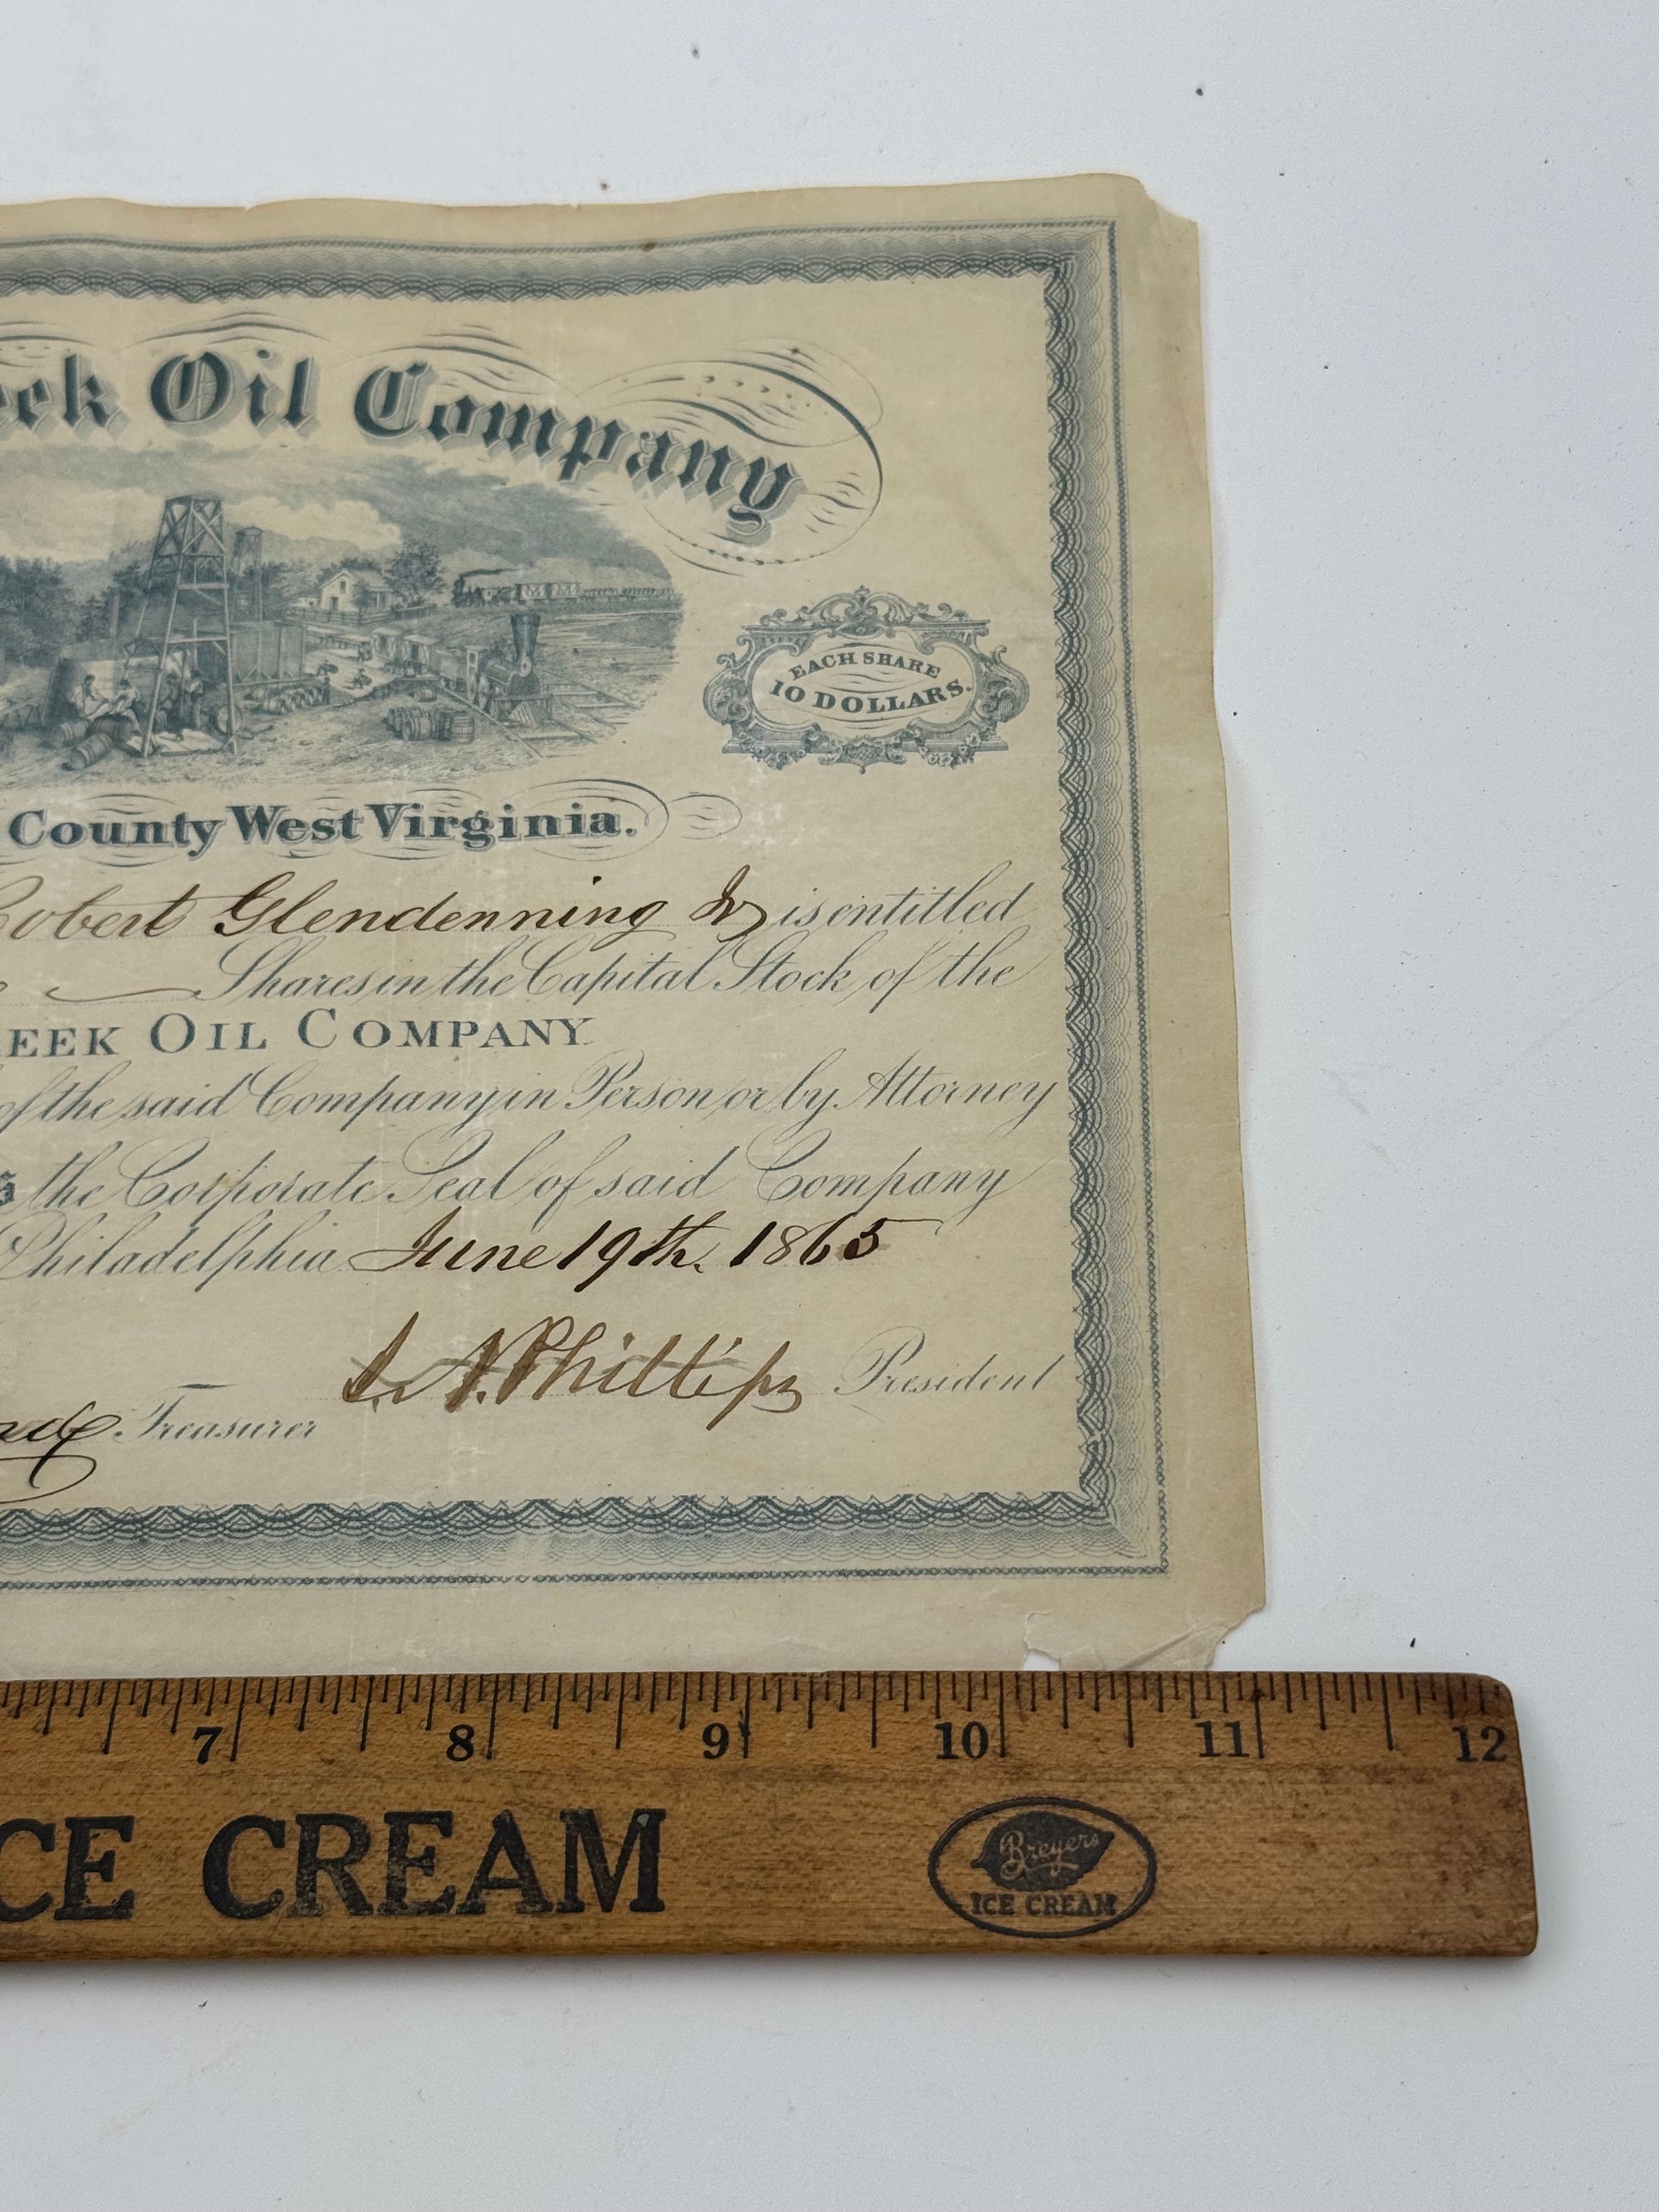 eek Oil Company
EACH SHARE
10 DOLLARS.
County West Virginia.
Robert Glendenning Jr is entitled
Shares in the Capital Stock of the
REEK OIL COMPANY
of the said Company in Person or by Attorney
the Corporate Seal of said Company
Philadelphia June 19th. 1865
Phillips President
Treasurer
7 8 9 10 11 12
CE CREAM
Breyers
ICE CREAM